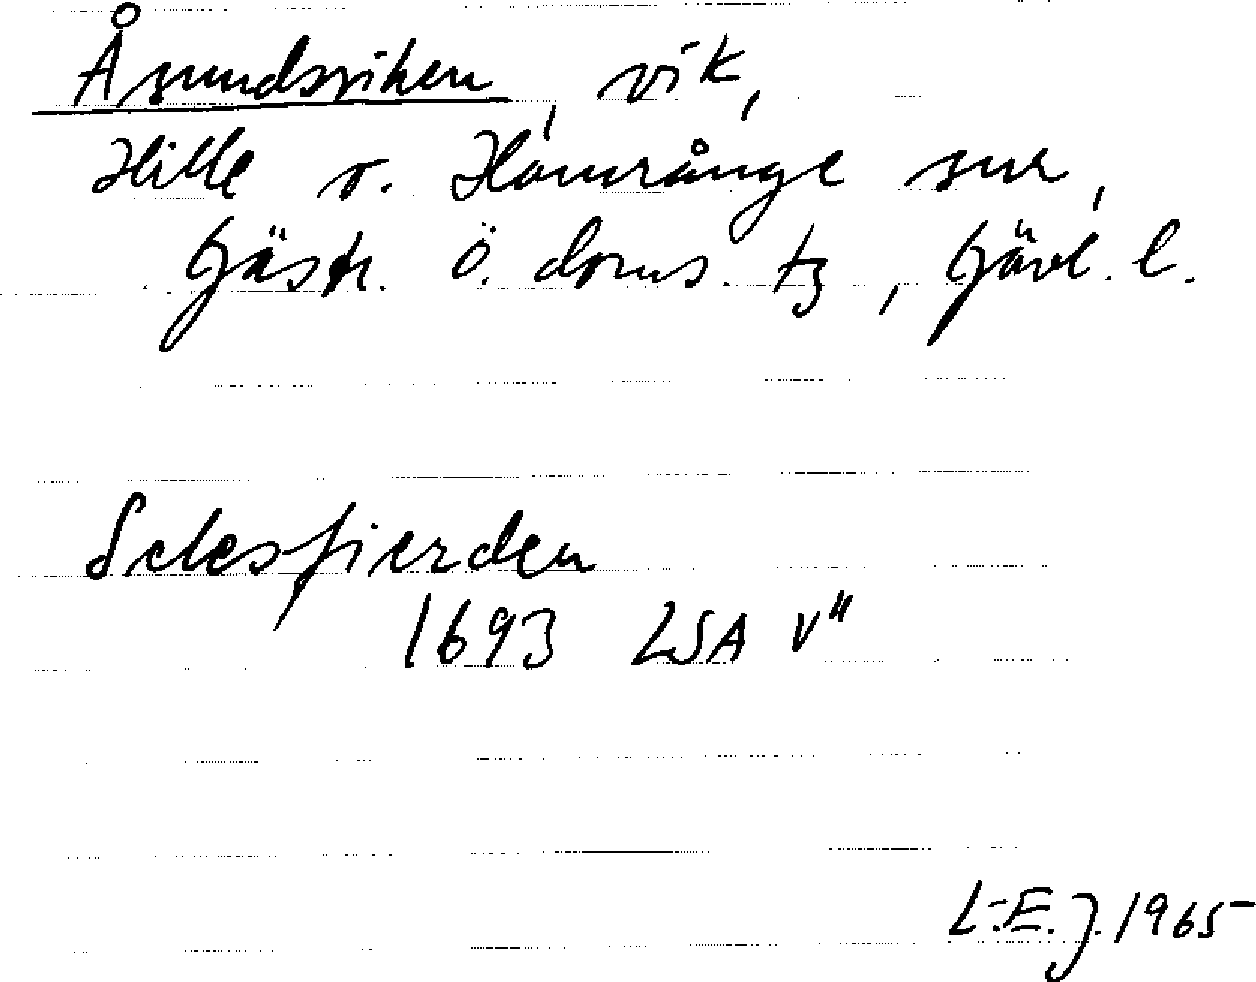 Åsundsviken, vik,
Hille o. Hamrånge snr,
Gästr. ö. doms. tg, Gävl. l.
Selesfierden
1693 LSA V"
L.E.J. 1965